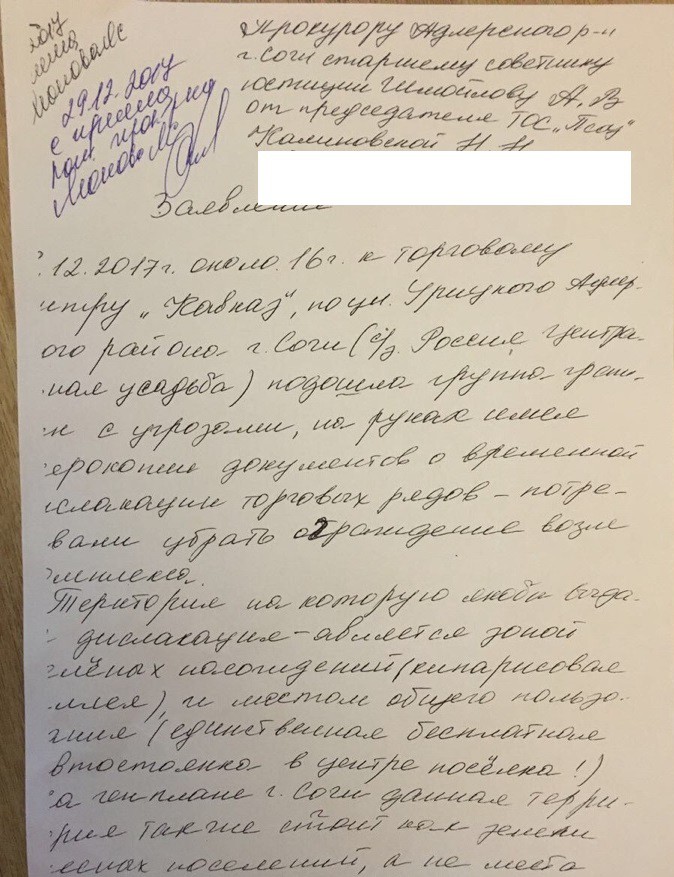 29.12.2017
с приёма
пом. прокурора
Прокурору Адлерского р-н
г. Сочи старшему советнику
юстиции Шмойлову А. В
от председателя ТОС „Псоу"
Калиновской Н Н
Заявление
.12.2017г. около 16г. к торговому
нтру „Кавказ", по ул. Урицкого Адлер-
ого района г. Сочи (с/з. Россия Центра-
ная усадьба) подошла группа граж-
н с угрозами, на руках имея
ерокопии документов о временной
ислакации торговых рядов – потре-
вали убрать ограждение возле
мплекса.
Територия на которую якобы выда-
дислакация – является зоной
елёных насождений (кипарисовая
ллея), и местом общего пользо-
ания (единственная бесплатная
втостоянка в центре посёлка!)
а генплане г. Сочи данная терри-
рия также стоит как земли
леных поселений, а не места